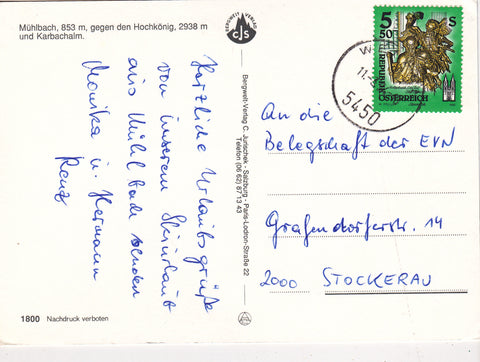 Mühlbach, 853 m, gegen den Hochkönig, 2938 m
und Karbachalm.
Herzliche Urlaubsgrüße
von unserem Skiurlaub
aus Mühlbach senden
Monika u. Hermann
BERGWELT VERLAG
CJS
Bergwelt-Verlag C. Jurischek · Salzburg · Paris-Lodron-Straße 22
Telefon (06 62) 87 13 43
5 50 S
REPUBLIK
ÖSTERREICH
5450
An die
Belegschaft der EVN
Grafendorferstr. 14
2000 STOCKERAU
1800 Nachdruck verboten